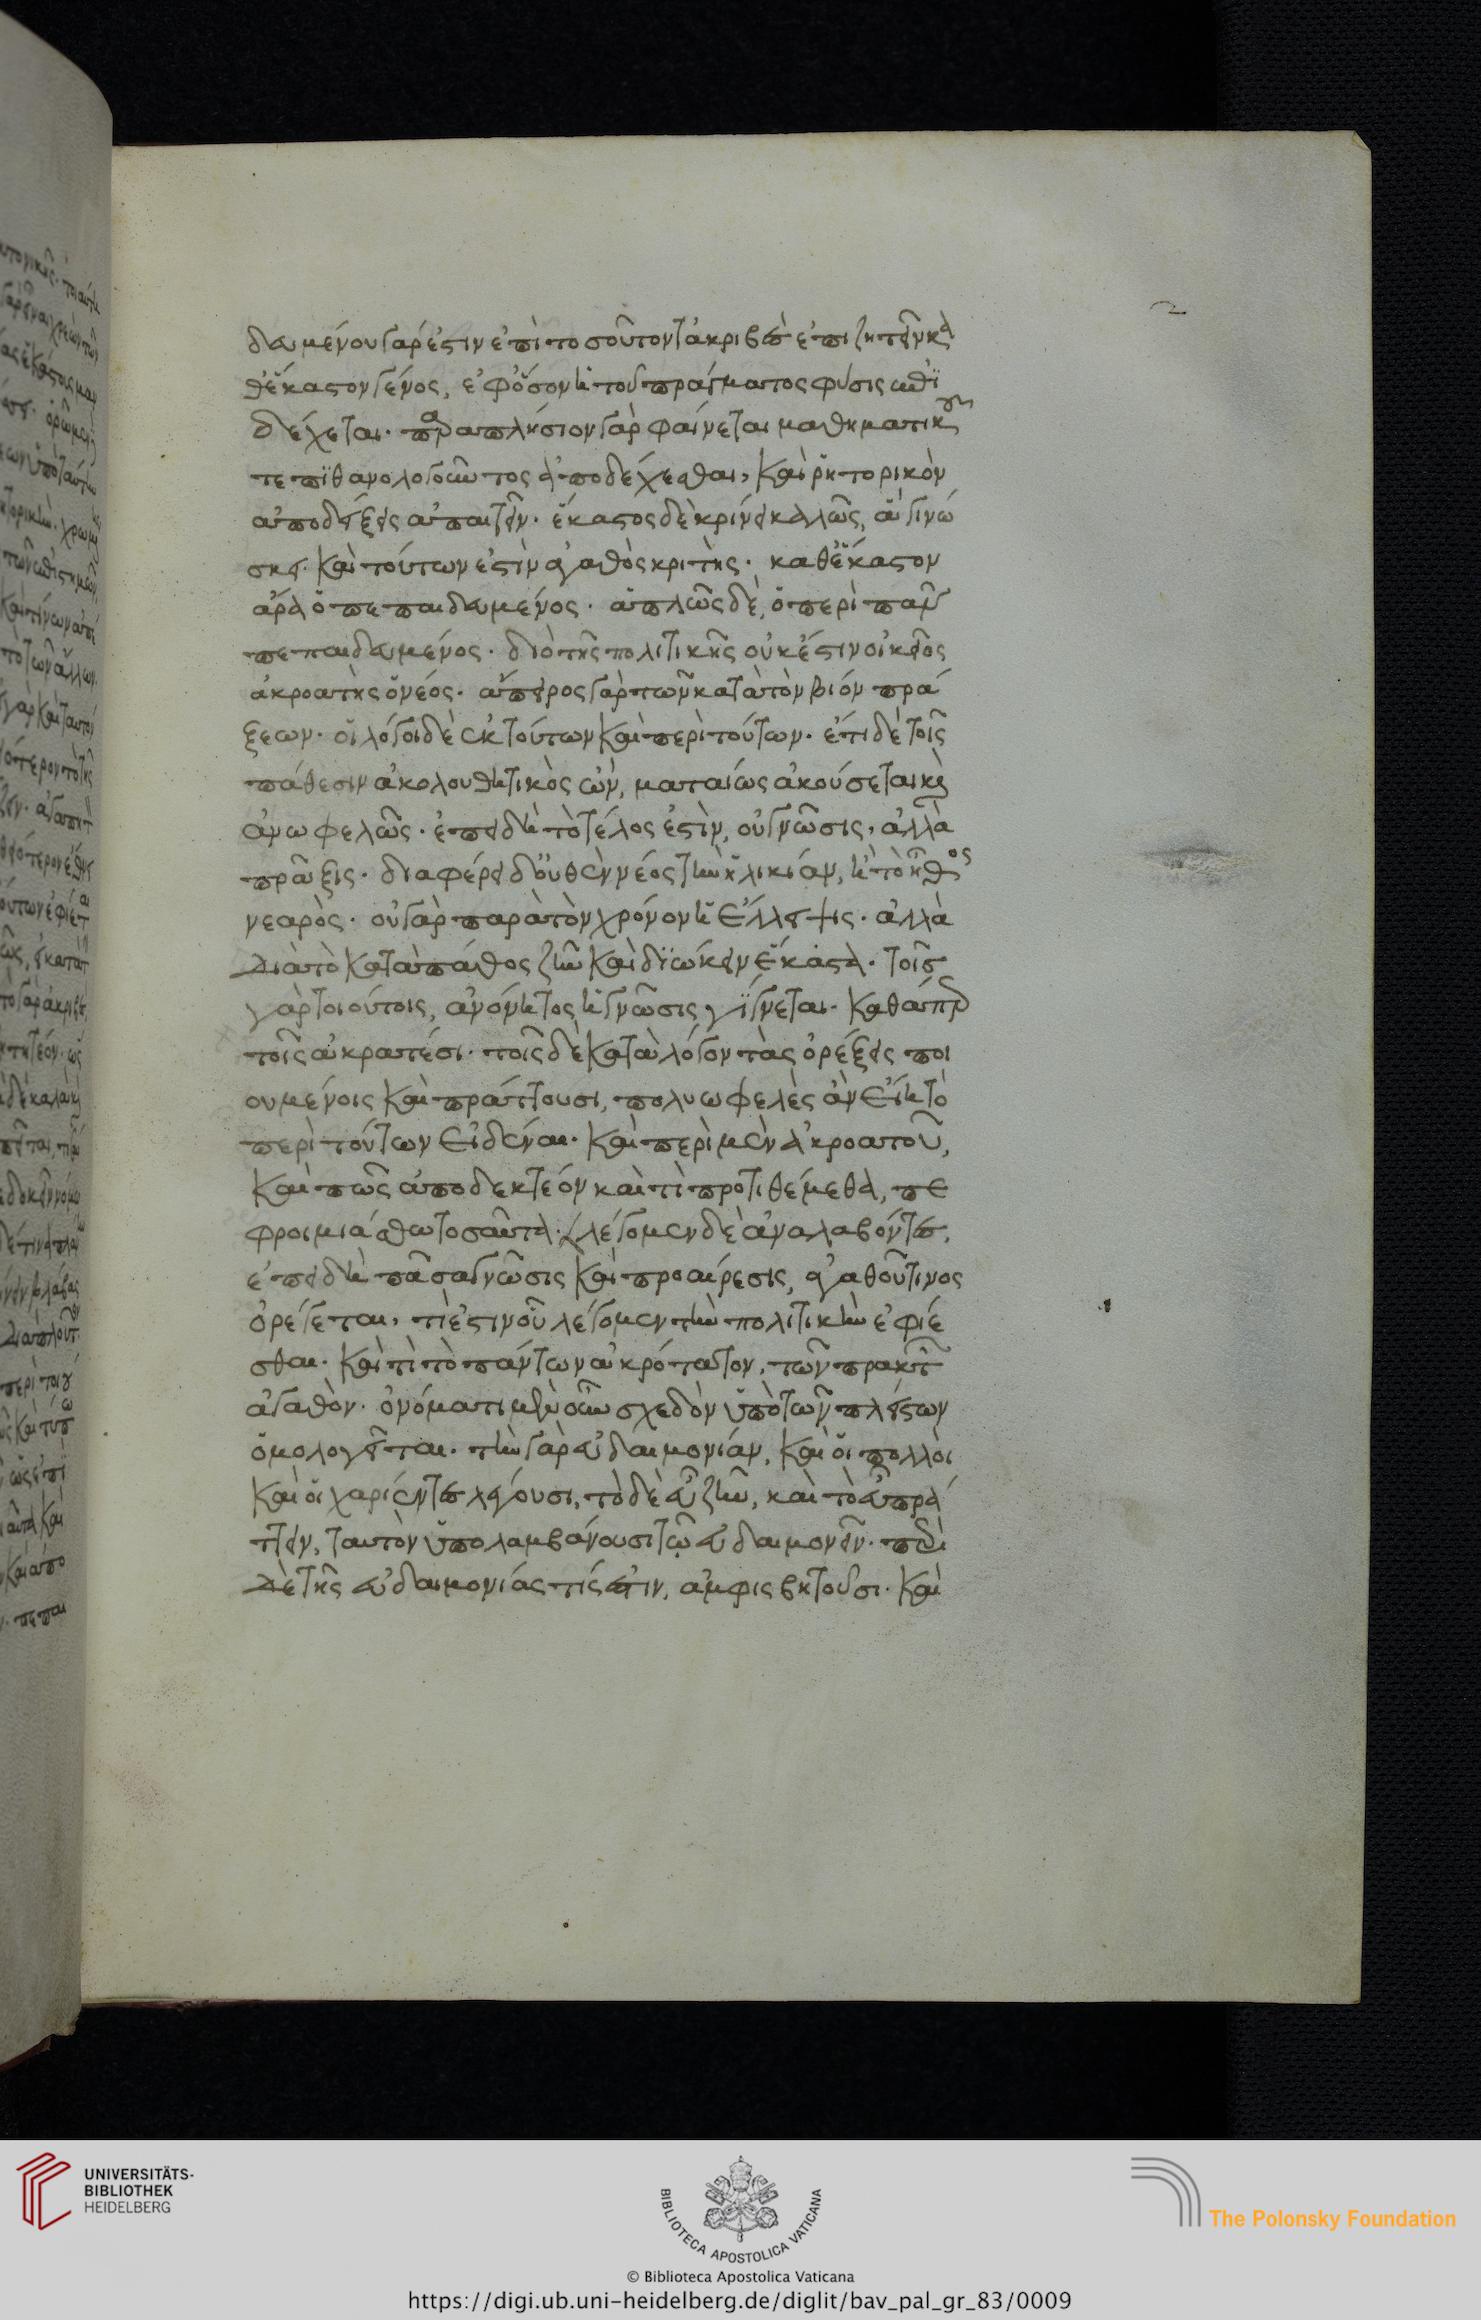 2
δευμένου γάρ ἐστιν ἐπὶ τοσοῦτον τἀκριβὲς ἐπιζητεῖν κα
θ' ἕκαστον γένος, ἐφ' ὅσον ἡ τοῦ πράγματος φύσις ἐπι
δέχεται. παραπλήσιον γὰρ φαίνεται μαθηματικοῦ
τε πιθανολογοῦντος ἀποδέχεσθαι, καὶ ῥητορικὸν
ἀποδείξεις ἀπαιτεῖν. ἕκαστος δὲ κρίνει καλῶς, ἃ γινώ
σκει. καὶ τούτων ἐστὶν ἀγαθὸς κριτής. καθ' ἕκαστον
ἄρα ὁ πεπαιδευμένος. ἁπλῶς δὲ, ὁ περὶ πᾶν
πεπαιδευμένος. διὸ τῆς πολιτικῆς οὐκ ἔστιν οἰκεῖος
ἀκροατὴς ὁ νέος. ἄπειρος γὰρ τῶν κατὰ τὸν βίον πρά
ξεων. οἱ λόγοι δὲ ἐκ τούτων καὶ περὶ τούτων. ἔτι δὲ τοῖς
πάθεσιν ἀκολουθητικὸς ὤν, ματαίως ἀκούσεται καὶ
ἀνωφελῶς. ἐπειδὴ τὸ τέλος ἐστὶν, οὐ γνῶσις, ἀλλὰ
πρᾶξις. διαφέρει δ' οὐθὲν νέος τὴν ἡλικίαν, ἢ τὸ ἦθος
νεαρός. οὐ γὰρ παρὰ τὸν χρόνον ἡ ἔλλειψις. ἀλλὰ
διὰ τὸ κατὰ πάθος ζῆν καὶ διώκειν ἕκαστα. τοῖς
γὰρ τοιούτοις, ἀνόνητος ἡ γνῶσις γίγνεται. καθάπερ
τοῖς ἀκρατέσι. τοῖς δὲ κατὰ λόγον τὰς ὀρέξεις ποι
ουμένοις καὶ πράττουσι, πολυωφελὲς ἂν εἴη τὸ
περὶ τούτων εἰδέναι. καὶ περὶ μὲν ἀκροατοῦ,
καὶ πῶς ἀποδεκτέον καὶ τί προτιθέμεθα, πε
φροιμιάσθω τοσαῦτα. λέγομεν δὲ ἀναλαβόντες,
ἐπειδὴ πᾶσα γνῶσις καὶ προαίρεσις, ἀγαθοῦ τινος
ὀρέγεται, τί ἐστιν οὗ λέγομεν τὴν πολιτικὴν ἐφίε
σθαι. καὶ τί τὸ πάντων ἀκρότατον, τῶν πρακτῶν
ἀγαθῶν. ὀνόματι μὲν οὖν σχεδὸν ὑπὸ τῶν πλείστων
ὁμολογεῖται. τὴν γὰρ εὐδαιμονίαν, καὶ οἱ πολλοὶ
καὶ οἱ χαρίεντες λέγουσι, τὸ δὲ εὖ ζῆν, καὶ τὸ εὖ πρά
ττειν, ταυτὸν ὑπολαμβάνουσι τῷ εὐδαιμονεῖν. περὶ
δὲ τῆς εὐδαιμονίας τί ἐστιν, ἀμφισβητοῦσι. καὶ
UNIVERSITÄTS-
BIBLIOTHEK
HEIDELBERG
BIBLIOTECA APOSTOLICA VATICANA
The Polonsky Foundation
© Biblioteca Apostolica Vaticana
https://digi.ub.uni-heidelberg.de/diglit/bav_pal_gr_83/0009